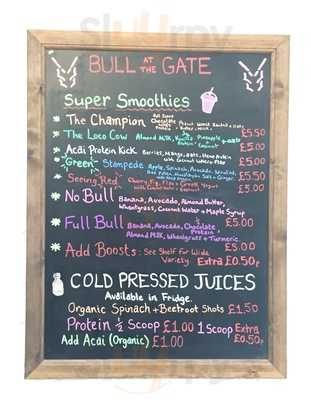 BULL AT THE GATE
Super Smoothies
The Champion
The Loco Cow Almond Milk, £5.50
Acai Protein Kick £5.00
Green Stampede Apple, Spinach, Avocado, £5.50
Seeing Red £5.00
No Bull Banana, Avocado, Almond Butter,
Wheatgrass, Coconut Water + Maple Syrup
Full Bull Banana, Avocado, Chocolate £5.00
Protein
Almond Milk, Wheatgrass + Turmeric
Add Boosts: See Shelf For Wide £5.00
Variety. Extra £0.50p
COLD PRESSED JUICES
Available in Fridge.
Organic Spinach + Beetroot Shots £1.50
Protein ½ Scoop £1.00 1 Scoop Extra
Add Acai (Organic) £1.00 £0.50p